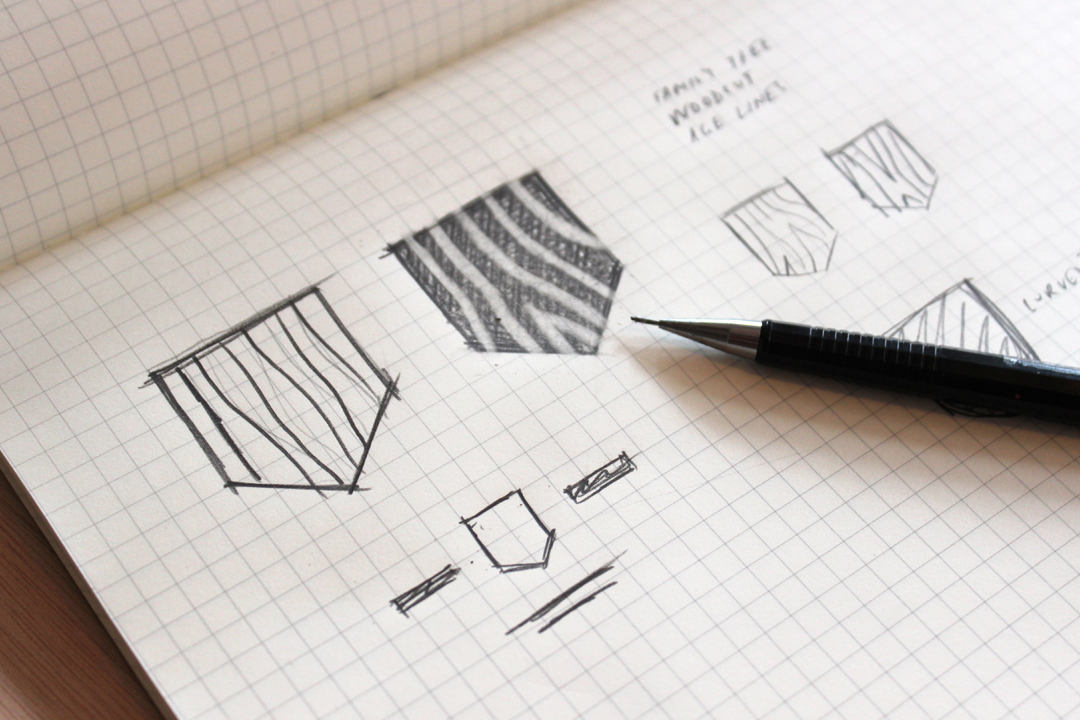 FAMILY TREE
WOODCUT
AGE LINES